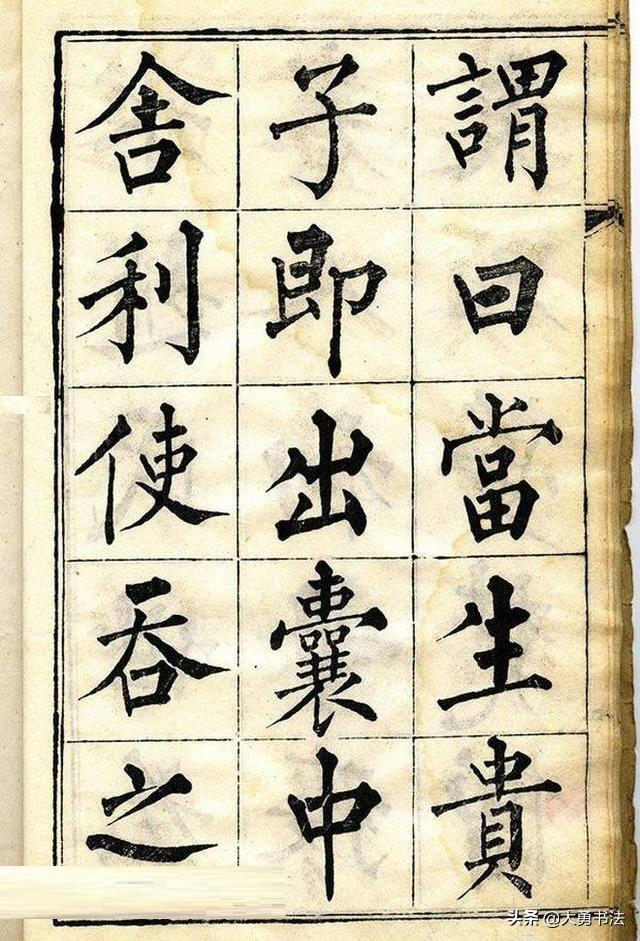 謂曰當生貴
子即出囊中
舍利使吞之
头条 @大勇书法